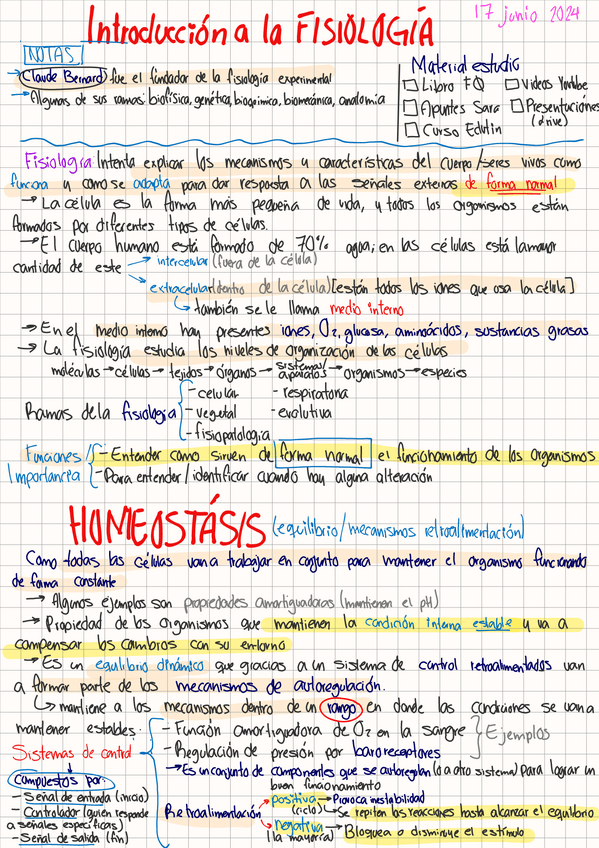 Introducción a la FISIOLOGÍA
17 junio 2024
NOTAS
→ Claude Bernard fue el fundador de la fisiología experimental
→ Algunas de sus ramas: biofísica, genética, bioquimica, biomecánica, anatomia
Material estudio
□ Libro FQ □ Videos Youtube
□ Apuntes Sara □ Presentaciónes (drive)
□ Curso Edutin
Fisiología: Intenta explicar los mecanismos y características del cuerpo/seres vivos como
funciona y como se adapta para dar respuesta a las señales externas de forma normal
→ La célula es la forma más pequeña de vida, y todos los organismos están
formados por diferentes tipos de células.
→ El cuerpo humano está formado de 70% agua; en las células está la mayor
cantidad de este → intercelular (fuera de la célula)
→ extracelular (dentro de la célula) [están todos los iones que usa la célula]
↳ también se le llama medio interno
→ En el medio interno hay presentes iones, O₂, glucosa, aminoácidos, sustancias grasas
→ La fisiología estudia los niveles de organización de las células
moléculas → células → tejidos → órganos → sistemas/aparatos → organismos → especies
Ramas de la fisiología
- celular - respiratoria
- vegetal - evolutiva
- fisiopatologia
Funciones / Importancia
- Entender como sirven de forma normal el funcionamiento de los organismos
- Para entender/identificar cuando hay alguna alteración
HOMEOSTÁSIS (equilibrio/mecanismos retroalimentación)
Como todas las células van a trabajar en conjunto para mantener el organismo funcionando
de forma constante
→ Algunos ejemplos son propiedades amortiguadoras (mantienen el pH)
→ Propiedad de los organismos que mantienen la condición interna estable y va a
compensar los cambios con su entorno
→ Es un equilibrio dinámico que gracias a un sistema de control retroalimentados van
a formar parte de los mecanismos de autoregulación.
↳ mantiene a los mecanismos dentro de un rango en donde las condiciones se van a
mantener estables.
Sistemas de control
- Función amortiguadora de O₂ en la sangre
- Regulación de presión por baroreceptores
Ejemplos
Compuestos por:
- Señal de entrada (inicio)
- Controlador (quien responde
a señales específicas)
- Señal de salida (fin)
Retroalimentación
→ Es un conjunto de componentes que se autoregulan (o a otro sistema) para lograr un
buen funcionamiento
positiva → Provoca inestabilidad
(ciclo) ↳ Se repiten las reacciones hasta alcanzar el equilibrio
negativa → Bloquea o disminuye el estímulo
(la mayoría)